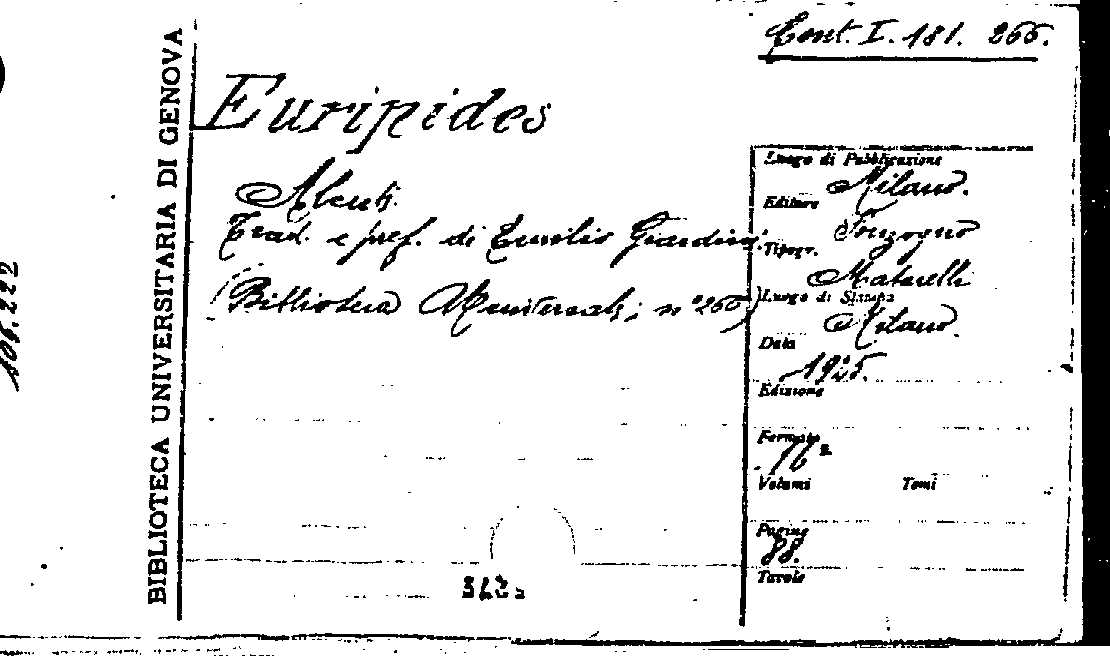 Cont. I. 181. 266.
BIBLIOTECA UNIVERSITARIA DI GENOVA
Euripides
Alcesti.
Trad. e pref. di Emilio Girardini.
(Biblioteca Universale; n° 266)
Luogo di Pubblicazione
Milano.
Editore
Sonzogno
Tipogr.
Matarelli
Luogo di Stampa
Milano.
Data
1925.
Edizione
Formato
16°
Volumi Tomi
Pagine
88.
Tavole